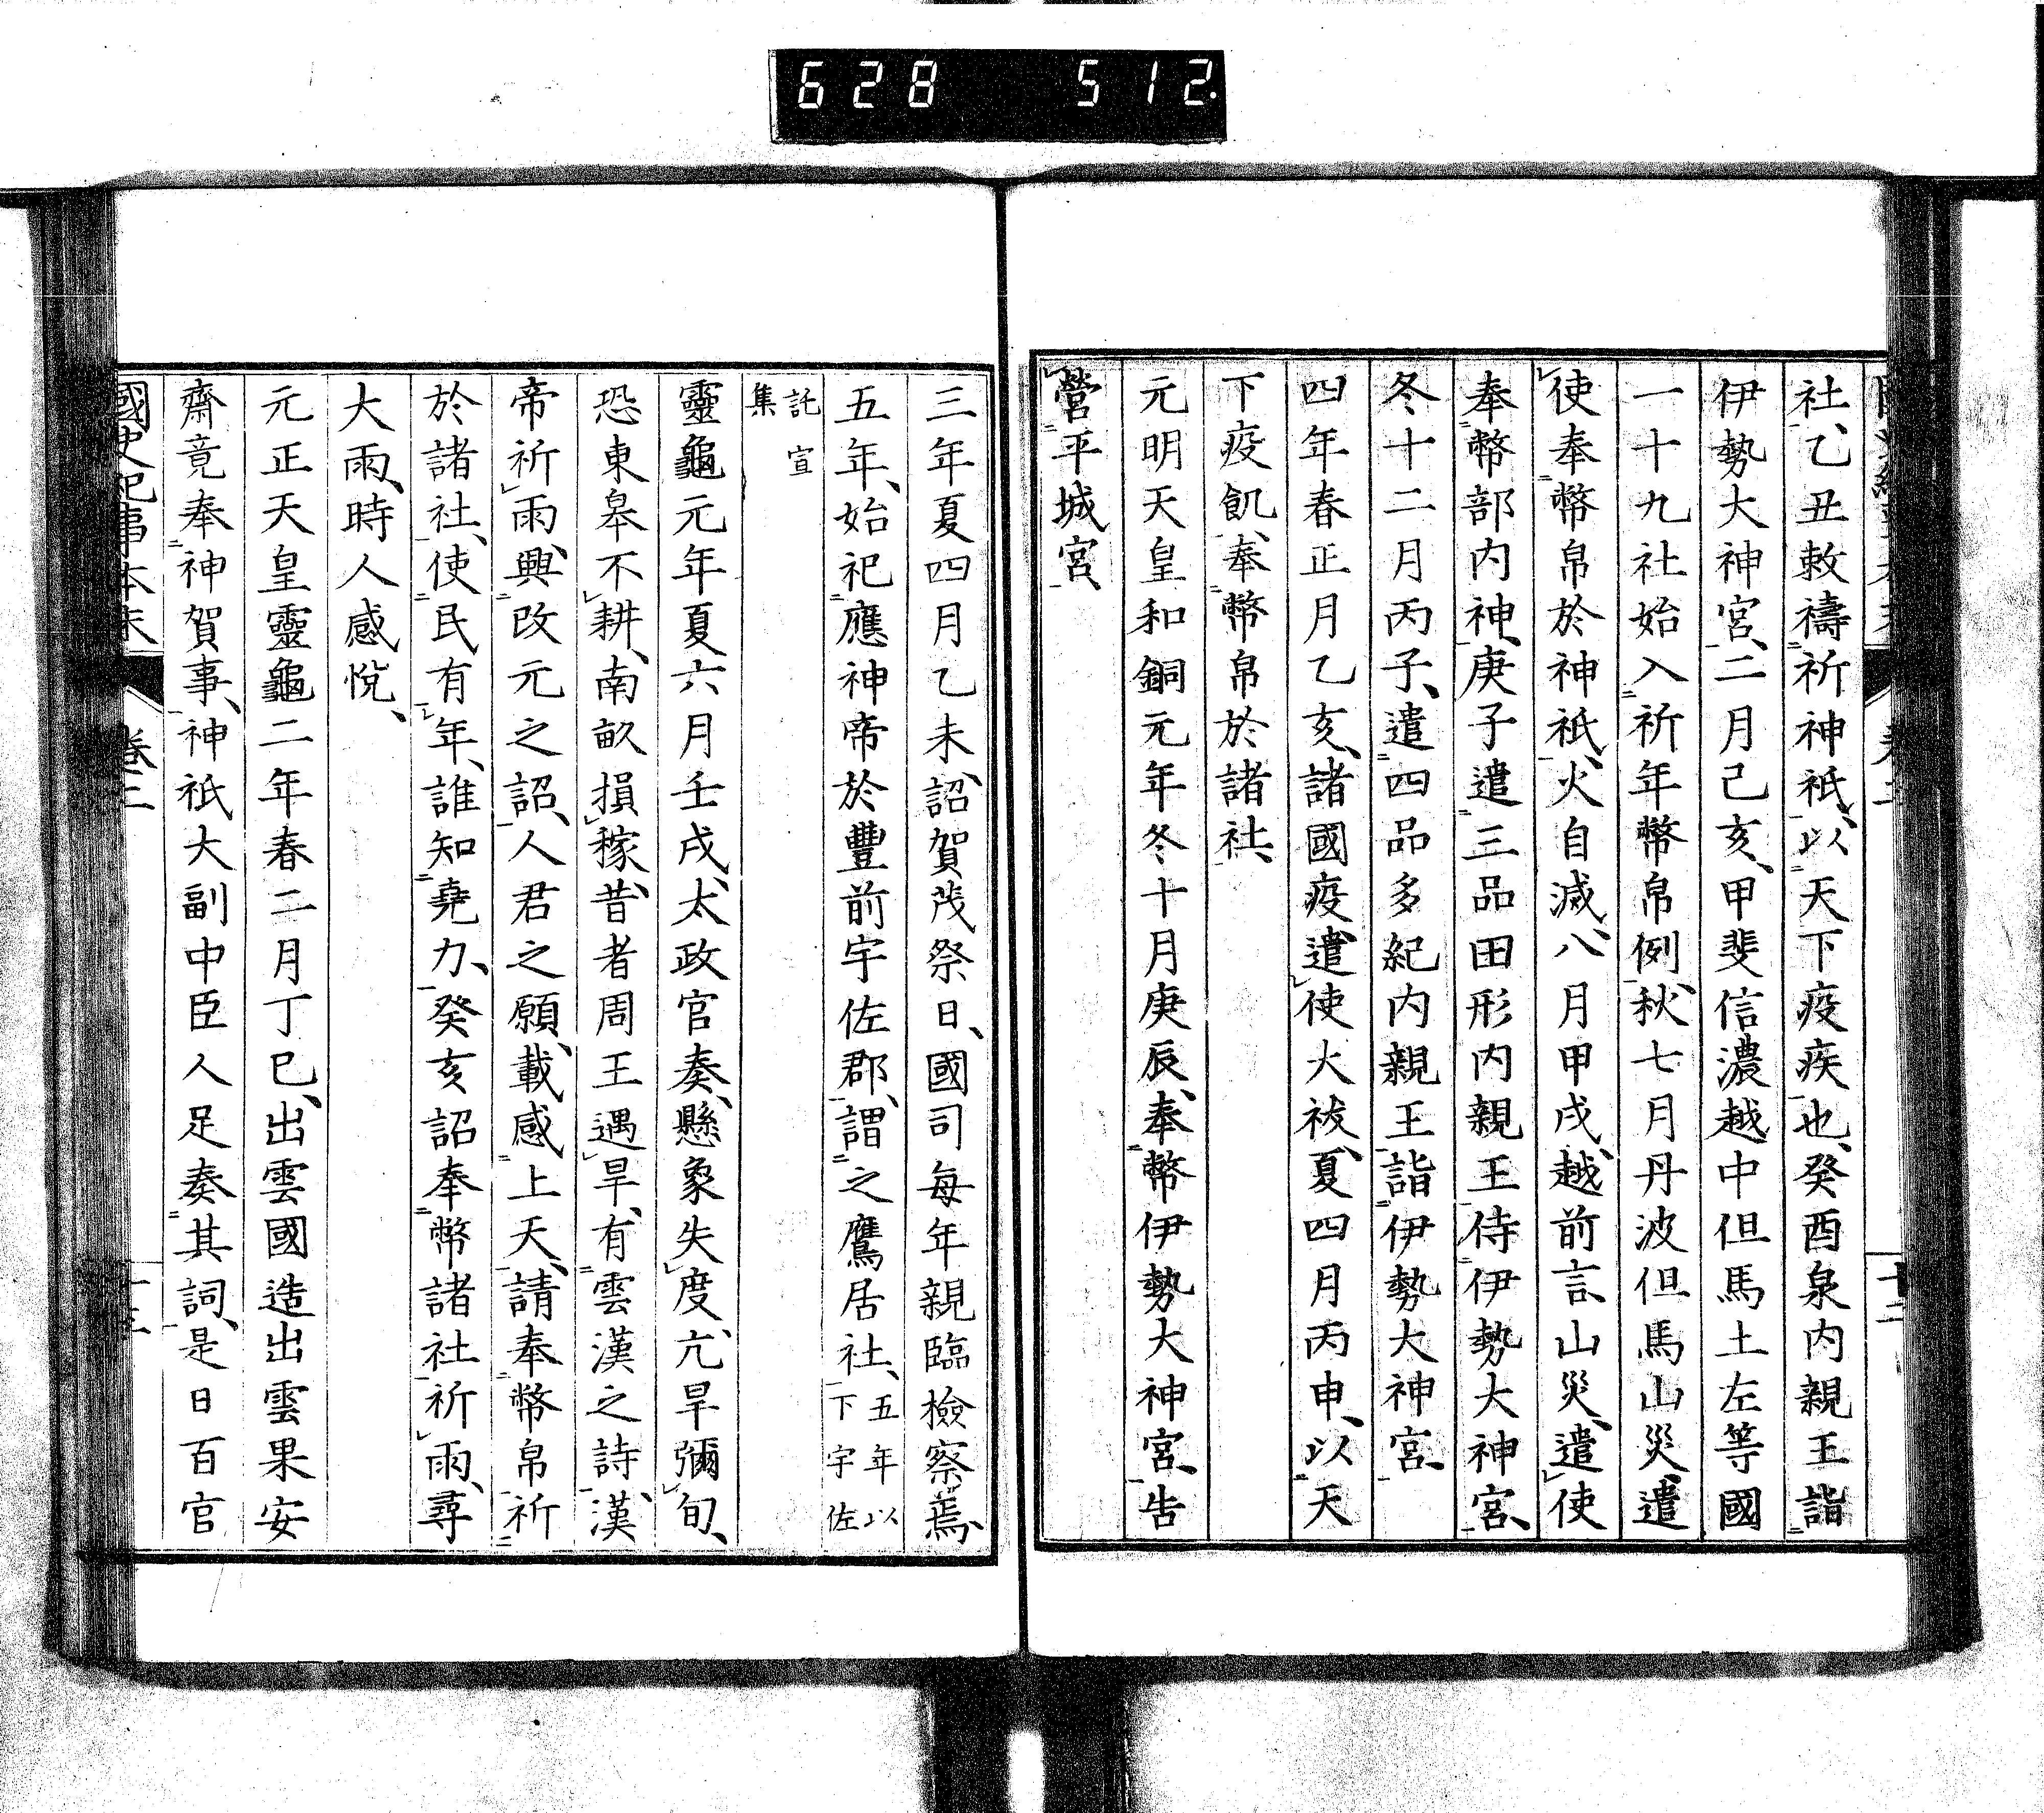 628 512.
社、乙丑敕禱祈神祇、以天下疫疾也、癸酉泉内親王詣
伊勢大神宮、二月己亥、甲斐信濃越中但馬土左等國
一十九社始入祈年幣帛例、秋七月丹波但馬山災、遣
使奉幣帛於神祇、火自滅、八月甲戌、越前言山災、遣使
奉幣部内神、庚子遣三品田形内親王侍伊勢大神宮、
冬十二月丙子、遣四品多紀内親王詣伊勢大神宮、
四年春正月乙亥、諸國疫、遣使大祓、夏四月丙申、以天
下疫飢、奉幣帛於諸社、
元明天皇和銅元年冬十月庚辰、奉幣伊勢大神宮、告
營平城宮、
三年夏四月乙未、詔賀茂祭日、國司每年親臨檢察焉、
五年、始祀應神帝於豐前宇佐郡、謂之鷹居社、五年以下宇佐
託宣集
靈龜元年夏六月壬戌、太政官奏、懸象失度、亢旱彌旬、
恐東皋不耕、南畝損稼、昔者周王遇旱、有雲漢之詩、漢
帝祈雨、興改元之詔、人君之願、載感上天、請奉幣帛祈
於諸社、使民有年、誰知堯力、癸亥詔奉幣諸社祈雨、尋
大雨、時人感悅、
元正天皇靈龜二年春二月丁巳、出雲國造出雲果安
齋竟奉神賀事、神祇大副中臣人足奏其詞、是日百官
國史紀事本末 卷二 十三